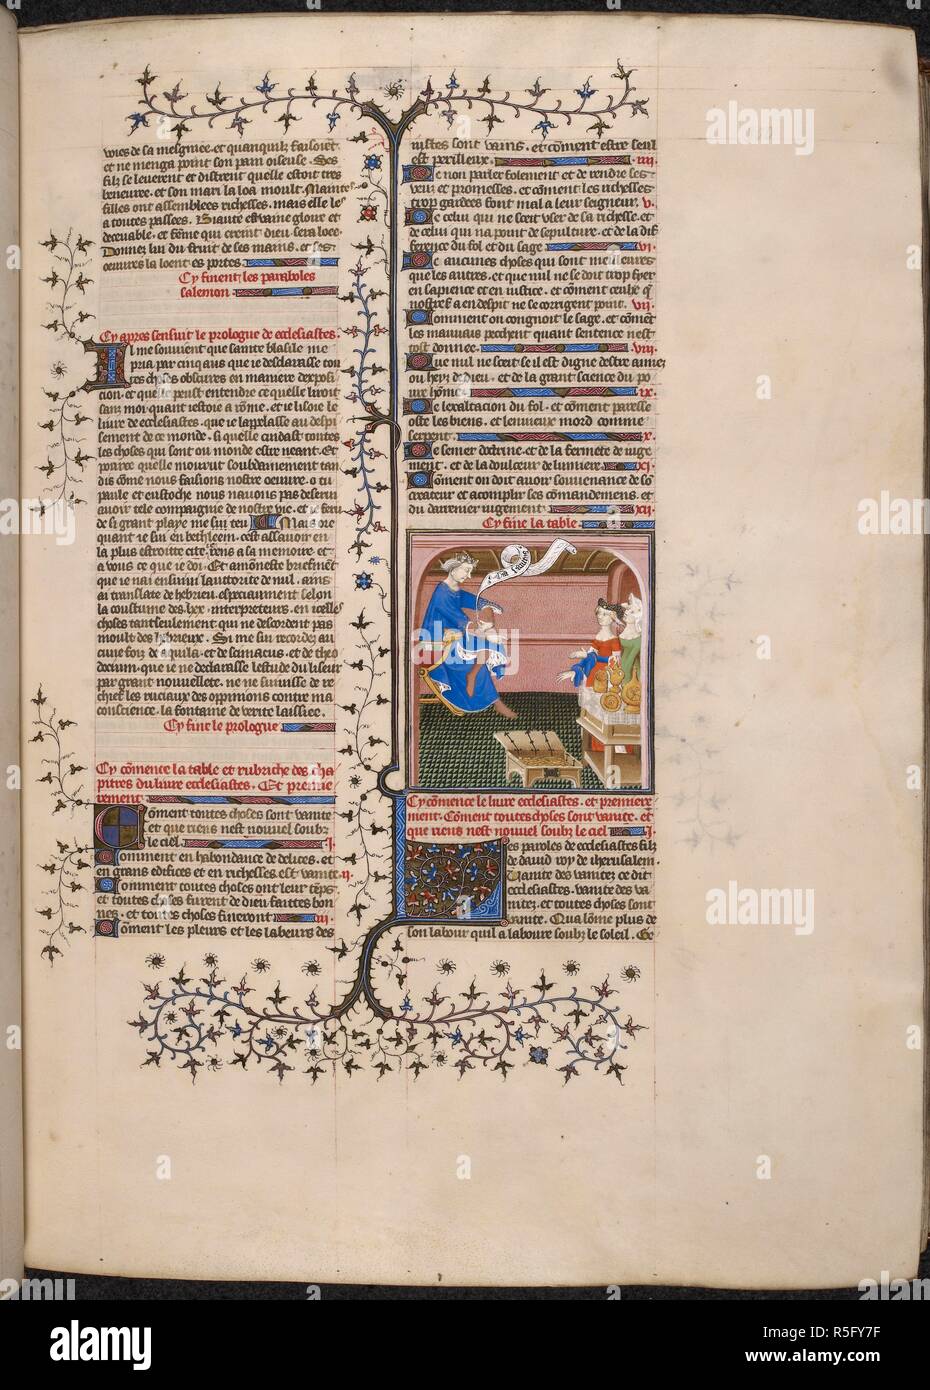 voies de sa mesgniee. et quanquilz faisoiēt
et ne menga point son pain oiseuse. Ses
filz se leuerent et distrent quelle estoit tres
beneuree. et son mari la loa moult. Maintes
filles ont assemblees richesses. mais elle les
a toutes passees. Biaute est vaine gloire et
deceuable. et fēme qui creint dieu sera loee.
Donnez lui du fruit de ses mains. et ses
oeuures la loent es portes
Cy finent les paraboles
salemon.
Cy apres sensuit le prologue de ecclesiastes.
Il me souuient que sainte blasile me
pria par cinq ans que ie desclarasse tou
tes choses obscures en maniere dexposi
cion. et quelle peust entendre ce quelle liroit
sanz moi. quant iestoie a rōme. et ie lisoie le
liure de ecclesiastes. que ie lappelasse au despi
sement de ce monde. si quelle cuidast toutes
les choses qui sont ou monde estre neant. Et
pource quelle mourut soubdainement tan
dis cōme nous faisions nostre oeuure. o tu
paule et eustoche nous nauons pas deserui
auoir tele compaignie de nostre vie. et ie feru
de si grant plaie me sui teu. Mais ore
quant ie sui en bethleem. cest assauoir en
la plus estroitte cite. rens a sa memoire. et
a vous ce que ie doi. Et amoneste briefmēt
que ie nai ensuiui lauttorite de nul. ains
ai translate de hebrieu. especiaument selon
la coustume des .lxx. interpreteurs. en icelles
choses tant seulement qui ne descordent pas
moult des hebrieux. Si me sui recordez au
cune foiz de aquila. et de simacus. et de theo
docium. que ie ne declarasse lestude du liseur
par grant nouuellete. ne ne suiuisse de re
chief les ruciaux des oppinions contre ma
conscience. la fontaine de verite laissiee.
Cy fine le prologue
Cy cōmence la table et rubriche des cha
pitres du liure ecclesiastes. Et premie
rement
Cōment toutes choses sont vanite
et que riens nest nouuel soubz
le ciel. .i.
Comment en habondance de delices. et
en grans edifices et en richesses est vanite .ii.
Comment toutes choses ont leur tēps.
et toutes choses furent de dieu faites bon
nes. et toutes choses fineront .iii.
Cōment les pleurs et les labeurs des
iustes sont vains. et cōment estre seul
est perilleux. .iiii.
De non parler folement et de rendre ses
veux et promesses. et cōment les richesses
trop gardees font mal a leur seigneur. v.
De celui qui ne scet vser de sa richesse. et
de celui qui na point de sepulture. et de la dif
ference du fol et du sage .vi.
De aucunes choses qui sont meilleures
que les autres. et que nul ne se doit trop fyer
en sapience et en iustice. et cōment ceulx q̄
nostres a en despit ne se corrigent point. vii.
Comment on congnoit le sage. et cōmēt
les mauuais pechent quant sentence nest
tost donnee. .viii.
Que nul ne scet se il est digne destre amez
ou hey de dieu. et de la grant science du po
ure hōme .ix.
De lexaltacion du fol. et cōment paresse
oste les biens. et lenuieux mord comme
serpent. .x.
De semer doctrine. et de la fermete de iuge
ment. et de la doulceur de lumiere .xi.
Cōment on doit auoir souuenance de so
createur et acomplir ses cōmandemens. et
du darrenier iugement .xii.
Cy fine la table
Cy cōmence le liure ecclesiastes. et premiere
ment. Cōment toutes choses sont vanite. et
que riens nest nouuel soubz le ciel .i.
les paroles de ecclesiastes filz
de dauid roy de iherusalem.
Vanite des vanitez ce dit
ecclesiastes. vanite des va
nitez. et toutes choses sont
vanite. Qua lōme plus de
son labour quil a laboure soubz le soleil. Ge
alamy
a
alamy
Image ID: R5FY7F
www.alamy.com